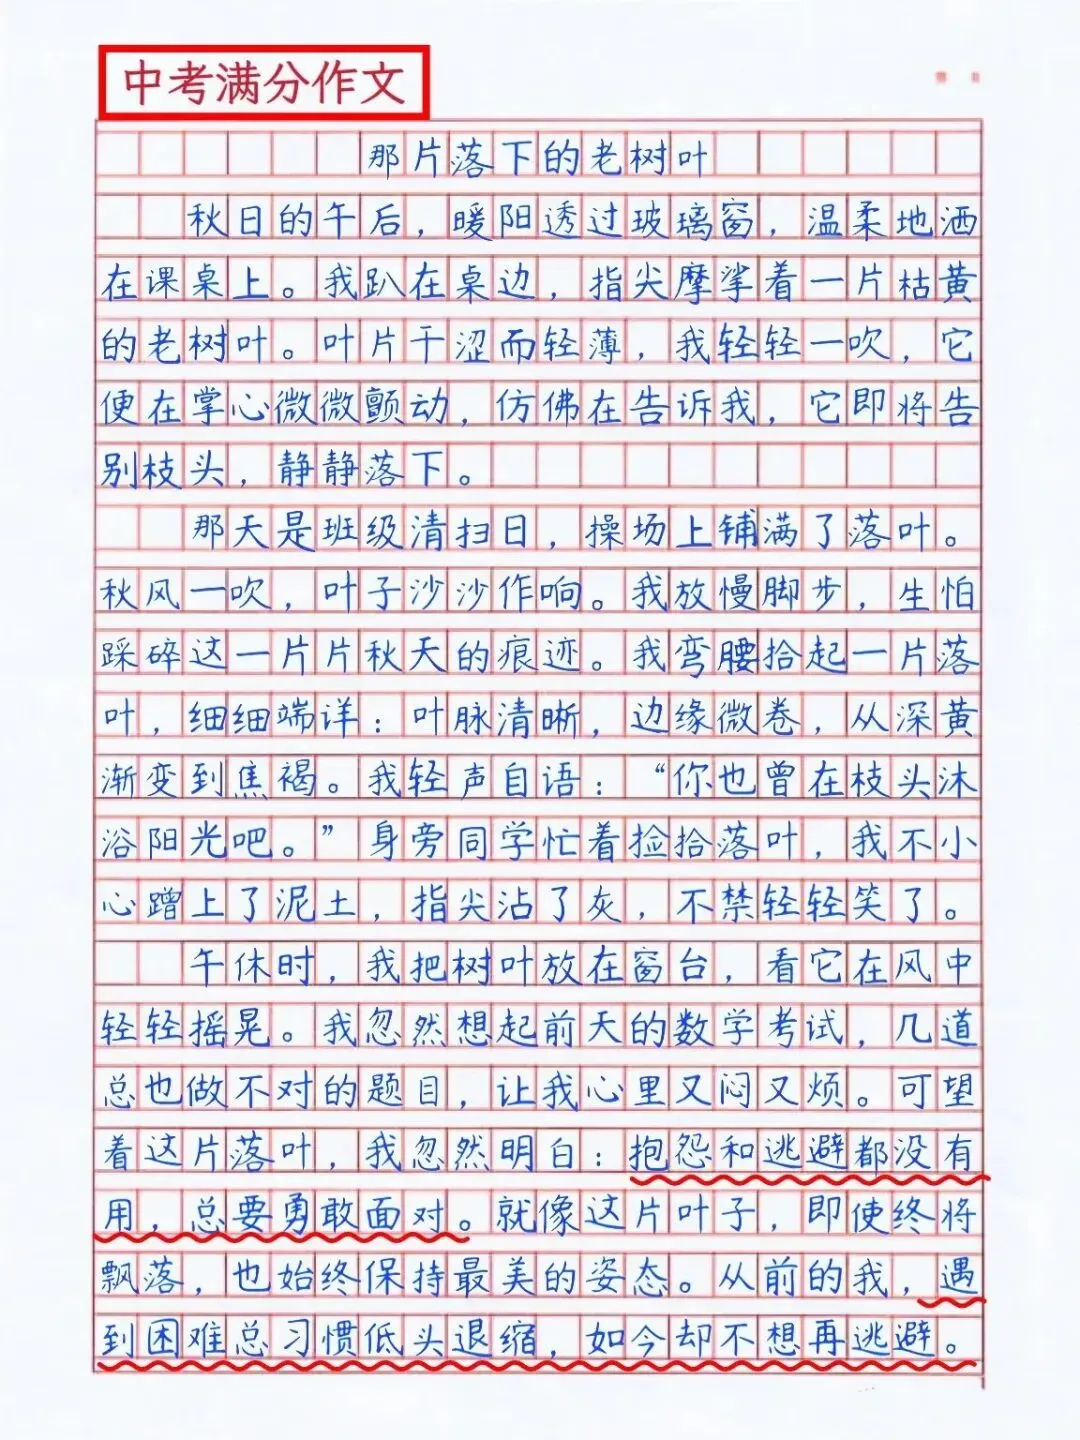 中考满分作文
那片落下的老树叶
秋日的午后，暖阳透过玻璃窗，温柔地洒
在课桌上。我趴在桌边，指尖摩挲着一片枯黄
的老树叶。叶片干涩而轻薄，我轻轻一吹，它
便在掌心微微颤动，仿佛在告诉我，它即将告
别枝头，静静落下。
那天是班级清扫日，操场上铺满了落叶。
秋风一吹，叶子沙沙作响。我放慢脚步，生怕
踩碎这一片片秋天的痕迹。我弯腰拾起一片落
叶，细细端详：叶脉清晰，边缘微卷，从深黄
渐变到焦褐。我轻声自语：“你也曾在枝头沐
浴阳光吧。”身旁同学忙着捡拾落叶，我不小
心蹭上了泥土，指尖沾了灰，不禁轻轻笑了。
午休时，我把树叶放在窗台，看它在风中
轻轻摇晃。我忽然想起前天的数学考试，几道
总也做不对的题目，让我心里又闷又烦。可望
着这片落叶，我忽然明白：抱怨和逃避都没有
用，总要勇敢面对。就像这片叶子，即使终将
飘落，也始终保持最美的姿态。从前的我，遇
到困难总习惯低头退缩，如今却不想再逃避。